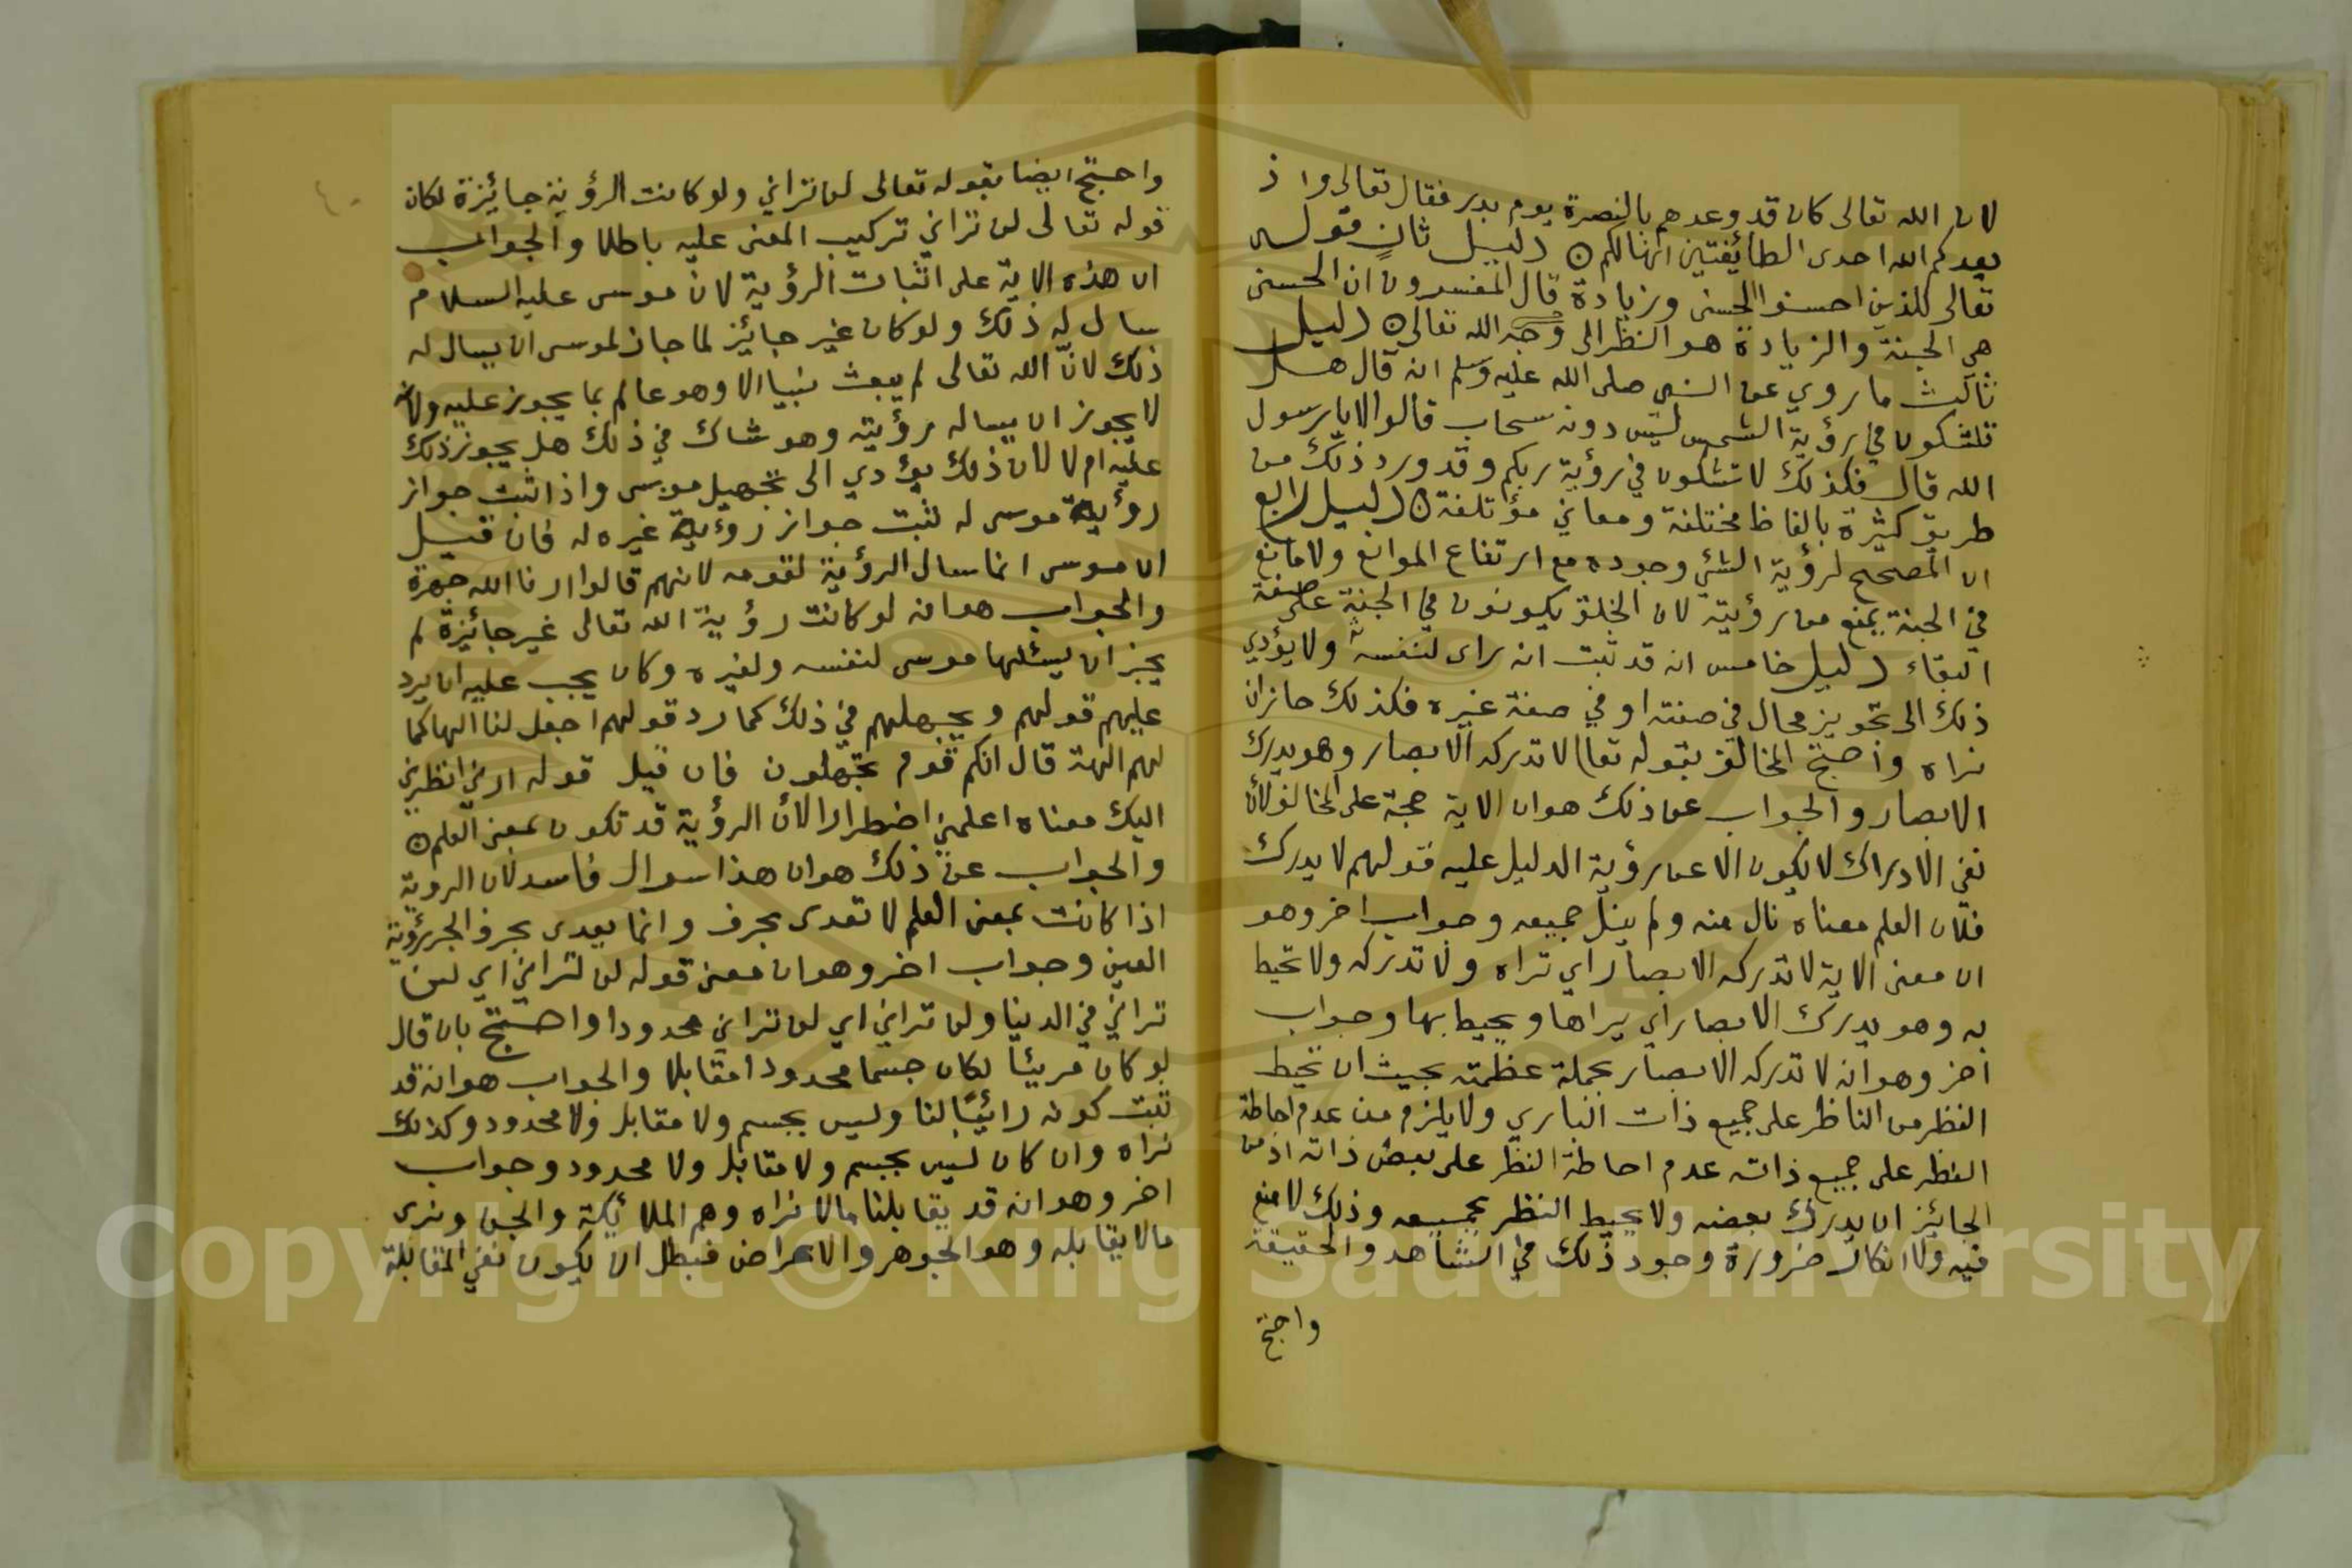 لان الله تعالى كان قد وعدهم بالنصرة يوم بدر فقال تعالى واذ
يعدكم الله احدى الطائفتين انها لكم ه دليل ثانٍ قوله
تعالى للذين احسنوا الحسنى وزيادة قال المفسرون ان الحسنى
هي الجنة والزيادة هو النظر الى وجه الله تعالى ه دليل
ثالث ما روي عن النبي صلى الله عليه وسلم انه قال هل
تشكون في رؤية الشمس ليس دونه سحاب قالوا لا يا رسول
الله قال فكذلك لا تشكون في رؤية ربكم وقد ورد ذلك من
طريق كثيرة بالفاظ مختلفة ومعاني مؤتلفة ه دليل رابع
ان المصحح لرؤية الشئ وجوده مع ارتفاع الموانع ولا مانع
في الجنة يمنع من رؤيته لان الخلق يكونون في الجنة على صفة
البقاء دليل خامس انه قد ثبت انه راى لنفسه ولا يؤدي
ذلك الى تجويز محال في صفته او في صفة غيره فكذلك جاز ان
نراه واحتج المخالف بقوله تعالى لا تدركه الابصار وهو يدرك
الابصار والجواب عن ذلك هو ان الاية حجة على المخالف لان
نفي الادراك لا يكون الا عن رؤية الدليل عليه قولهم لا يدرك
فلان العلم معناه نال منه ولم ينل جميعه وجواب اخر وهو
ان معنى الاية لا تدركه الابصار اي تراه ولا تدركه ولا تحيط
به وهو يدرك الابصار اي يراها ويحيط بها وجواب
اخر وهو انه لا تدركه الابصار بجملة عظمته بحيث ان تحيط
النظر من الناظر على جميع ذات الباري ولا يلزم من عدم احاطة
النظر على جميع ذاته عدم احاطة النظر على بعض ذاته اذ من
الجائز ان يدرك بعضه ولا يحيط النظر بجميعه وذلك لا منع
فيه ولا انكار ضرورة وجود ذلك في الشاهد والحقيقة
واحتج
واحتج ايضا بقوله تعالى لن تراني ولو كانت الرؤية جايزة لكان
قوله تعالى لن تراني تركيب المعنى عليه باطلا والجواب
ان هذه الاية على اثبات الرؤية لان موسى عليه السلام
سال له ذلك ولو كان غير جائز لما جاز لموسى ان يسال له
ذلك لانّ الله تعالى لم يبعث نبيا الا وهو عالم بما يجوز عليه ولانه
لا يجوز ان يساله رؤيته وهو شاك في ذلك هل يجوز ذلك
عليه ام لا لان ذلك يؤدي الى تجهيل موسى واذا ثبت جواز
رؤية موسى له ثبت جواز رؤية غيره له فان قيل
ان موسى انما سال الرؤية لقومه لانهم قالوا ارنا الله جهرة
والجواب هو انه لو كانت رؤية الله تعالى غير جائزة لم
يجز ان يسئلها موسى لنفسه ولغيره وكان يجب عليه ان يرد
عليهم قولهم ويجهلهم في ذلك كما رد قولهم اجعل لنا الها كما
لهم الهة قال انكم قوم تجهلون فان قيل قوله ارني انظر
اليك معناه اعلمني اضطرارا لان الرؤية قد تكون بمعنى العلم ه
والجواب عن ذلك هو ان هذا سوال فاسد لان الروية
اذا كانت بمعنى العلم لا تعدى بحرف وانما يعدى بحرف الجر رؤية
العين وجواب اخر وهو ان معنى قوله لن تراني اي لن
تراني في الدنيا ولن تراني اي لن تراني محدودا واحتج بان قال
لو كان مرئياً لكان جسما محدودا مقابلا والجواب هو انه قد
ثبت كونه رائيًا لنا وليس بجسم ولا مقابل ولا محدود وكذلك
نراه وان كان ليس بجسم ولا مقابل ولا محدود وجواب
اخر وهو انه قد يقابلنا ما لا نراه وهم الملائكة والجن ونرى
ما لا يقابله وهو الجوهر والاعراض فبطل ان يكون نفي المقابلة
Copyright © King Saud University